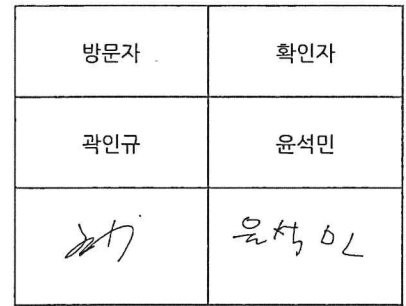 방문자 확인자
곽인규 윤석민
윤석민